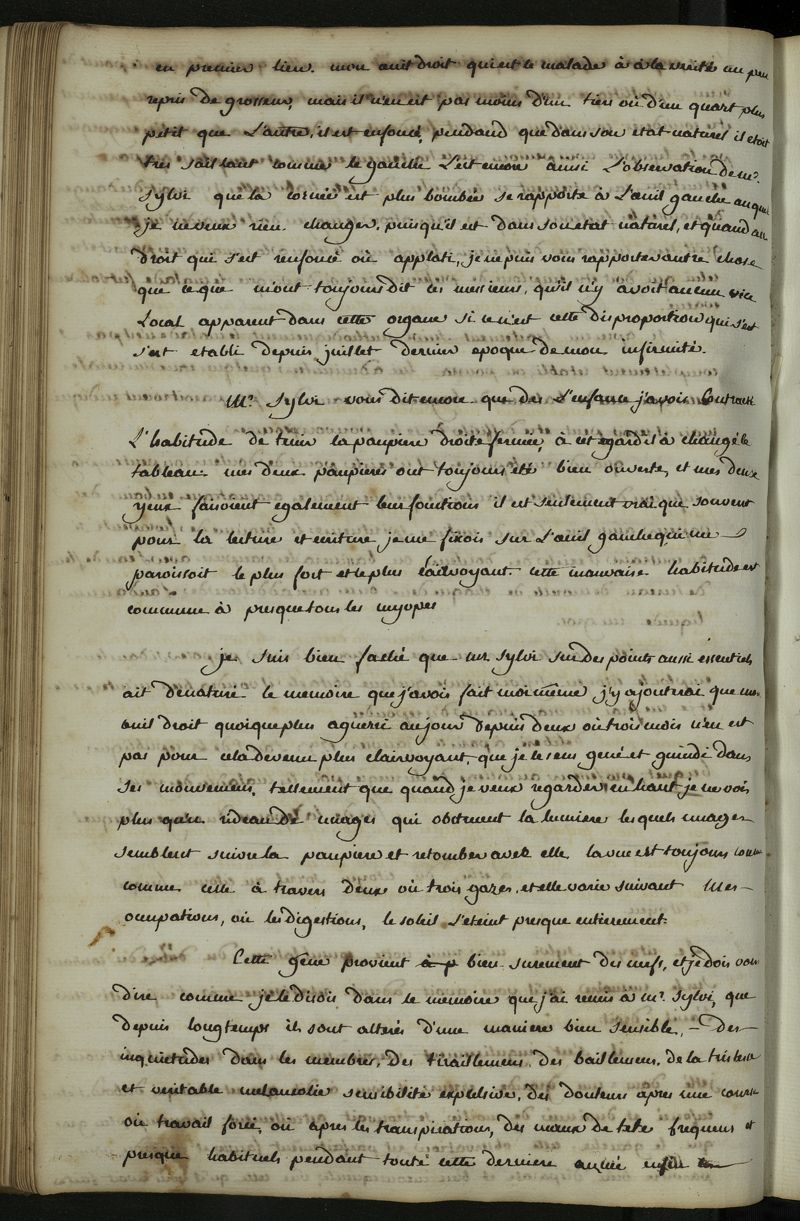 en premier lieu. mon œuil droit qui est le malade à à la verité un peu
repris de grosseur, mais il n'en est pas moins d'un tiers où d'un quart plus
petit que L'autre, il est enfoncé, pendand que dans son etat naturel il etoit
tres saillant comme le gauche C'est encore ainsi L'observation de mr.
Sylvi que la cornée est plus bombée se rapporte à L'œuil gauche au quel
je ne veux rien changer, puisqu'il est dans son etat naturel, et quand au
droit qui s'est renfoncé où applati, je ne puis vous rapporter autre chose
que ce que m'ont toujours dit ces messieurs, qu'il n'y avoit aucun vice
Local apparent dans cette organe si ce n'est cette disproportion qui s'est
s'est etabli depuis juillet dernier epoque de mon infirmité.
Mr. Sylvi vous dit encore que des L'enfance j'avois Contracté
L'habitude de tenir la paupiere droite fermée, à cet egard il à changé le
tableau mes deux paupieres ont toujours été bien ouverte, et mes deux
yeux faisoient egalement leur fonctions il est seulement vrai que souvent
pour la lecture et ecriture je ne fixois sur L'œuil gauche qui me
paroissoit le plus fort et le plus clairvoyant. cette mauvaise habitude est
commune à presque tous les myopes
je suis bien faché que mr. Sylvi sur des points aussi essentiels
ait denaturé le memoire que j'avois fait moi même j'y ajoutrai que mon
œuil droit quoique plus aguerri au jour depuis deux où trois mois n'en est
pas pour cela devenu plus clairvoyant, que je le sens gené et guindé dans
ses mouvemens, tellement que quand je veux regarder en haut je ne vois
plus qu'un rideau de nuages qui obstruent la lumiere lesquels nuages
semblent suivre la paupiere et retomber avec elle la vue est toujours comme
comme celle à travers deux où trois gazes, et elle varie suivant Mes
occupations, où les digestions, le soleil L'eteint presque entierement.
Cette gêne provient à p bien surement des nerfs, et je dois vous
dire comme je le disois dans le memoire que j'ai remis à mr. Sylvi, que
depuis longtemps ils sont alterés d'une maniere bien sensible, — Des
inquietudes dans les membres, des tiraillemens, des baillemens, de la tristesse
et veritable melancolie sensibilité des douleurs apres une course
où travail forcé, où apres les transpirations, des maux de tete frequens et
presque habituels pendant toute cette derniere année enfin